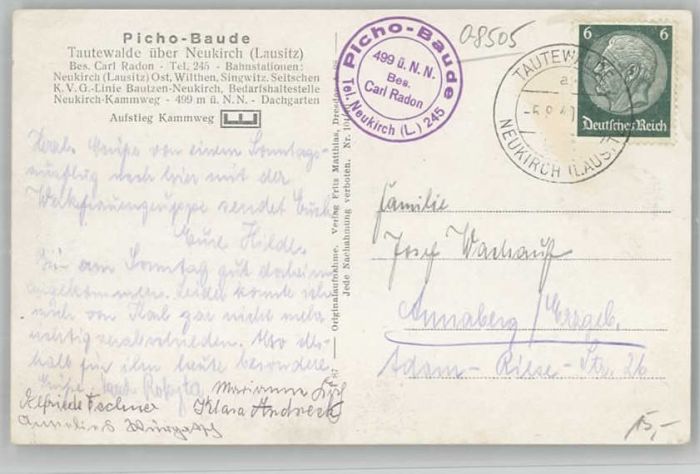 Picho-Baude
Tautewalde über Neukirch (Lausitz)
Bes. Carl Radon - Tel. 245 - Bahnstationen:
Neukirch (Lausitz) Ost, Wilthen, Singwitz, Seitschen
K. V. G.-Linie Bautzen-Neukirch, Bedarfshaltestelle
Neukirch-Kammweg - 499 m ü. N. N. - Dachgarten
Aufstieg Kammweg
Herzl. Grüße von einem Sonntags-
ausflug nach hier mit der
sendet Euch
Eure Hilde.
Bin am Sonntag gut daheim
angekommen. Leider konnte ich
mich von Karl gar nicht mehr
richtig verabschieden. Also des-
halb für ihn heute besondere
Grüße
Marianne
Elfriede Klara
Annelies
Originalaufnahme. Verlag Fritz Matthias, Dresden
Jede Nachahmung verboten. Nr.
Picho-Baude
499 ü. N. N.
Bes.
Carl Radon
Tel. Neukirch (L.) 245
08505
TAUTEWALDE
a
NEUKIRCH (LAUSITZ)
6 6
Deutsches Reich
Familie
Josef
Annaberg / Erzgeb.
Adam-Riese-Str. 26
15,-